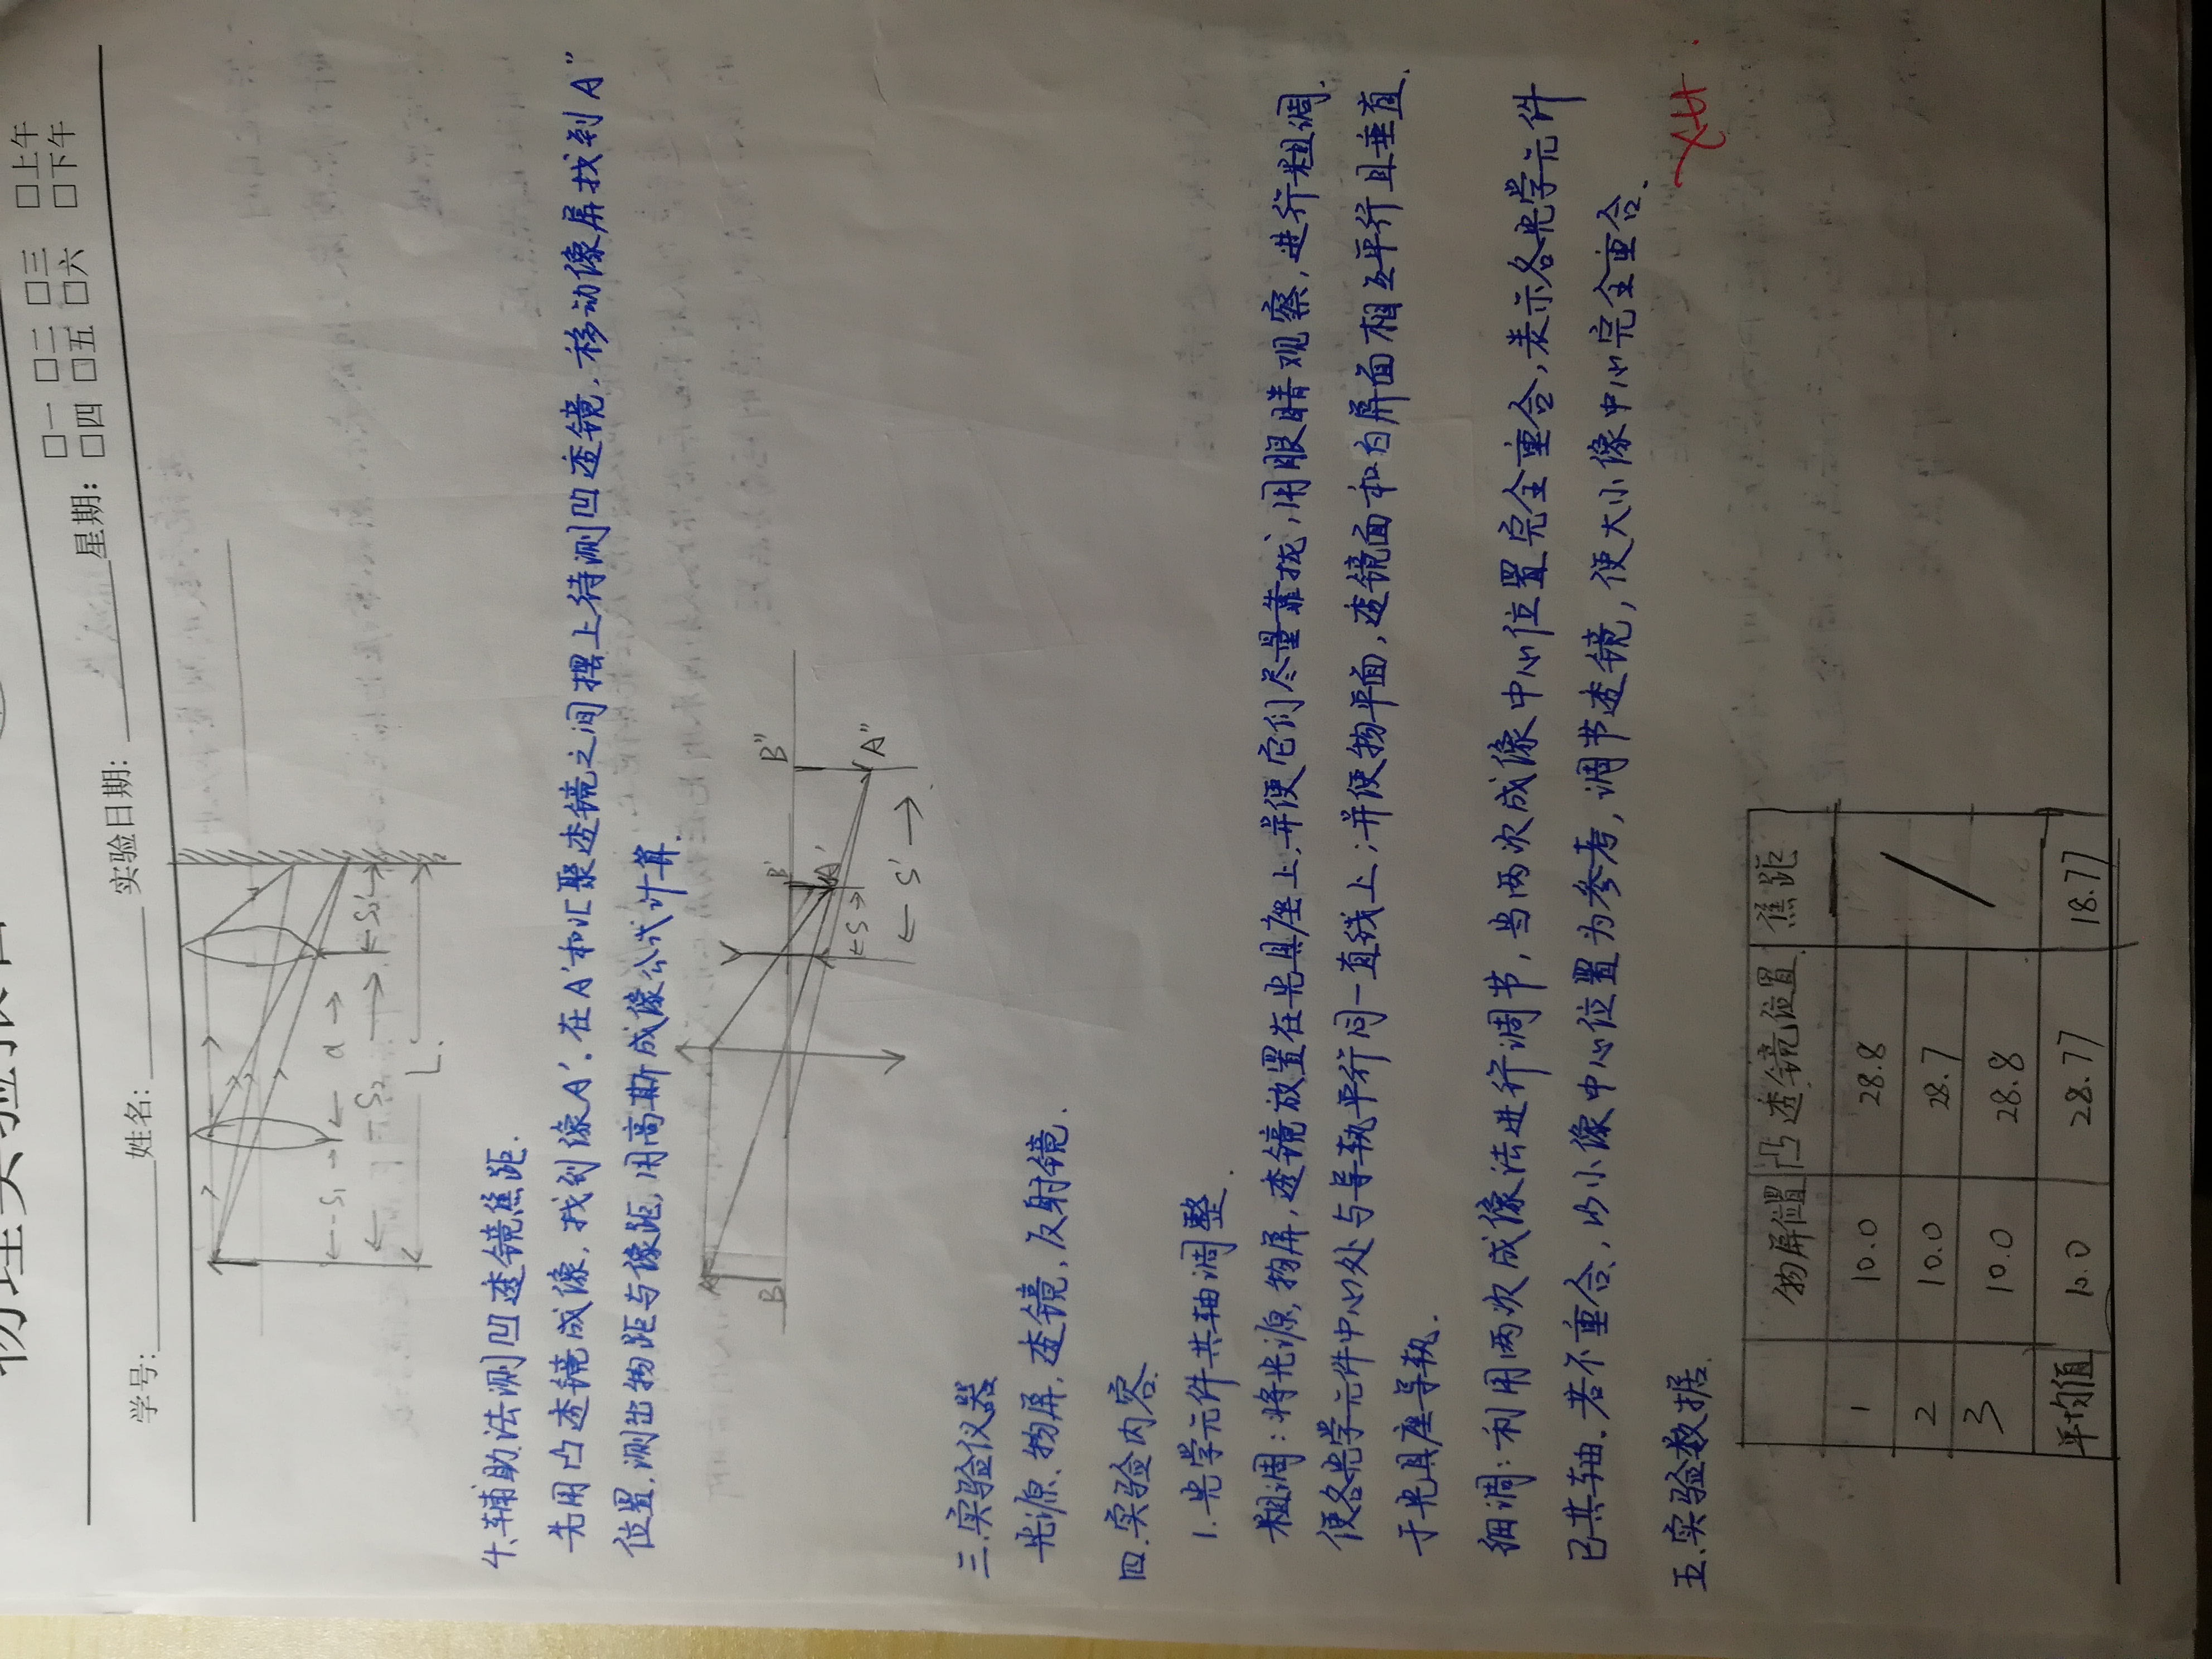 物理实验报告
□一 □二 □三 □上午
学号: 姓名: 实验日期: 星期: □四 □五 □六 □下午
-S₁ d
-S₂ S₂'
L.
4.辅助法测凹透镜焦距.
先用凸透镜成像,找到像A'.在A'和汇聚透镜之间摆上待测凹透镜,移动像屏找到A"
位置.测出物距与像距,用高斯成像公式计算.
A
B B' B"
A'
S A"
S'
三.实验仪器
光源、物屏,透镜,反射镜.
四.实验内容
1.光学元件共轴调整.
粗调:将光源,物屏,透镜放置在光具座上,并使它们尽量靠拢,用眼睛观察,进行粗调.
使各光学元件中心处与导轨平行同一直线上;并使物平面,透镜面和白屏面相互平行且垂直
于光具座导轨.
细调:利用两次成像法进行调节,当两次成像中心位置完全重合,表示各光学元件
已共轴.若不重合,以小像中心位置为参考,调节透镜,使大小像中心完全重合.
五.实验数据.
物屏位置 凸透镜位置 焦距
1 10.0 28.8
2 10.0 28.7
3 10.0 28.8
平均值 10.0 28.77 18.77